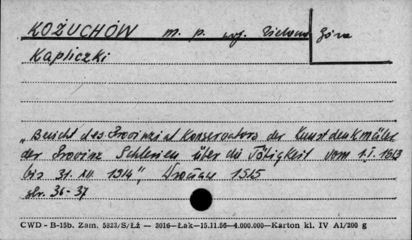 KOŻUCHÓW m. p. woj. Zielona Góra
Kapliczki
„Bericht des Provinzial Konservators der Kunstdenkmäler
der Provinz Schlesien über die Tätigkeit vom 1.I.1913
bis 31.XII 1914", Breslau 1915
str. 36-37
CWD - B-15b. Zam. 5823/S/Łż — 2016—Łak—15.11.56—4.000.000—Karton kl. IV A1/200 g